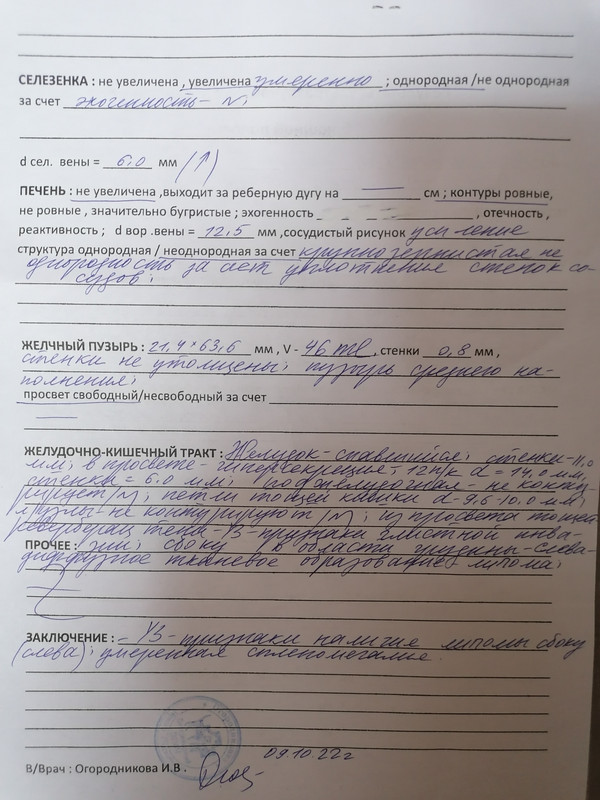 СЕЛЕЗЕНКА : не увеличена , увеличена умеренно ; однородная /не однородная
за счет эхогенность - N;
d сел. вены = 6,0 мм (↑)
ПЕЧЕНЬ : не увеличена ,выходит за реберную дугу на — см ; контуры ровные,
не ровные , значительно бугристые ; эхогенность , отечность ,
реактивность ; d вор .вены = 12,5 мм ,сосудистый рисунок усиление
структура однородная / неоднородная за счет крупнозернистая не
однородность за счет уплотнения стенок со-
судов;
ЖЕЛЧНЫЙ ПУЗЫРЬ : 21,4 × 63,6 мм , V - 46 ml , стенки 0,8 мм ,
стенки не утолщены; пузырь среднего на-
полнения;
просвет свободный/несвободный за счет
—
ЖЕЛУДОЧНО-КИШЕЧНЫЙ ТРАКТ : Желудок - спавшийся; стенки -
мм; в просвете - гиперсекреция - 12 п/к d = 14,0 мм,
стенка = 6,0 мм; поджелудочная - не конту-
рирует /N/; петли тощей кишки d - 9,6-10,0 мм;
л/узлы - не контурируют /N/; из просвета тощей
тени - УЗ-признаки глистной инва-
ПРОЧЕЕ : зии; сбоку в области грудины - слева -
диффузное тканевое образование липома;
ЗАКЛЮЧЕНИЕ : - УЗ-признаки наличия липомы сбоку
(слева); умеренная спленомегалия.
09.10.22г
В/Врач : Огородникова И.В .